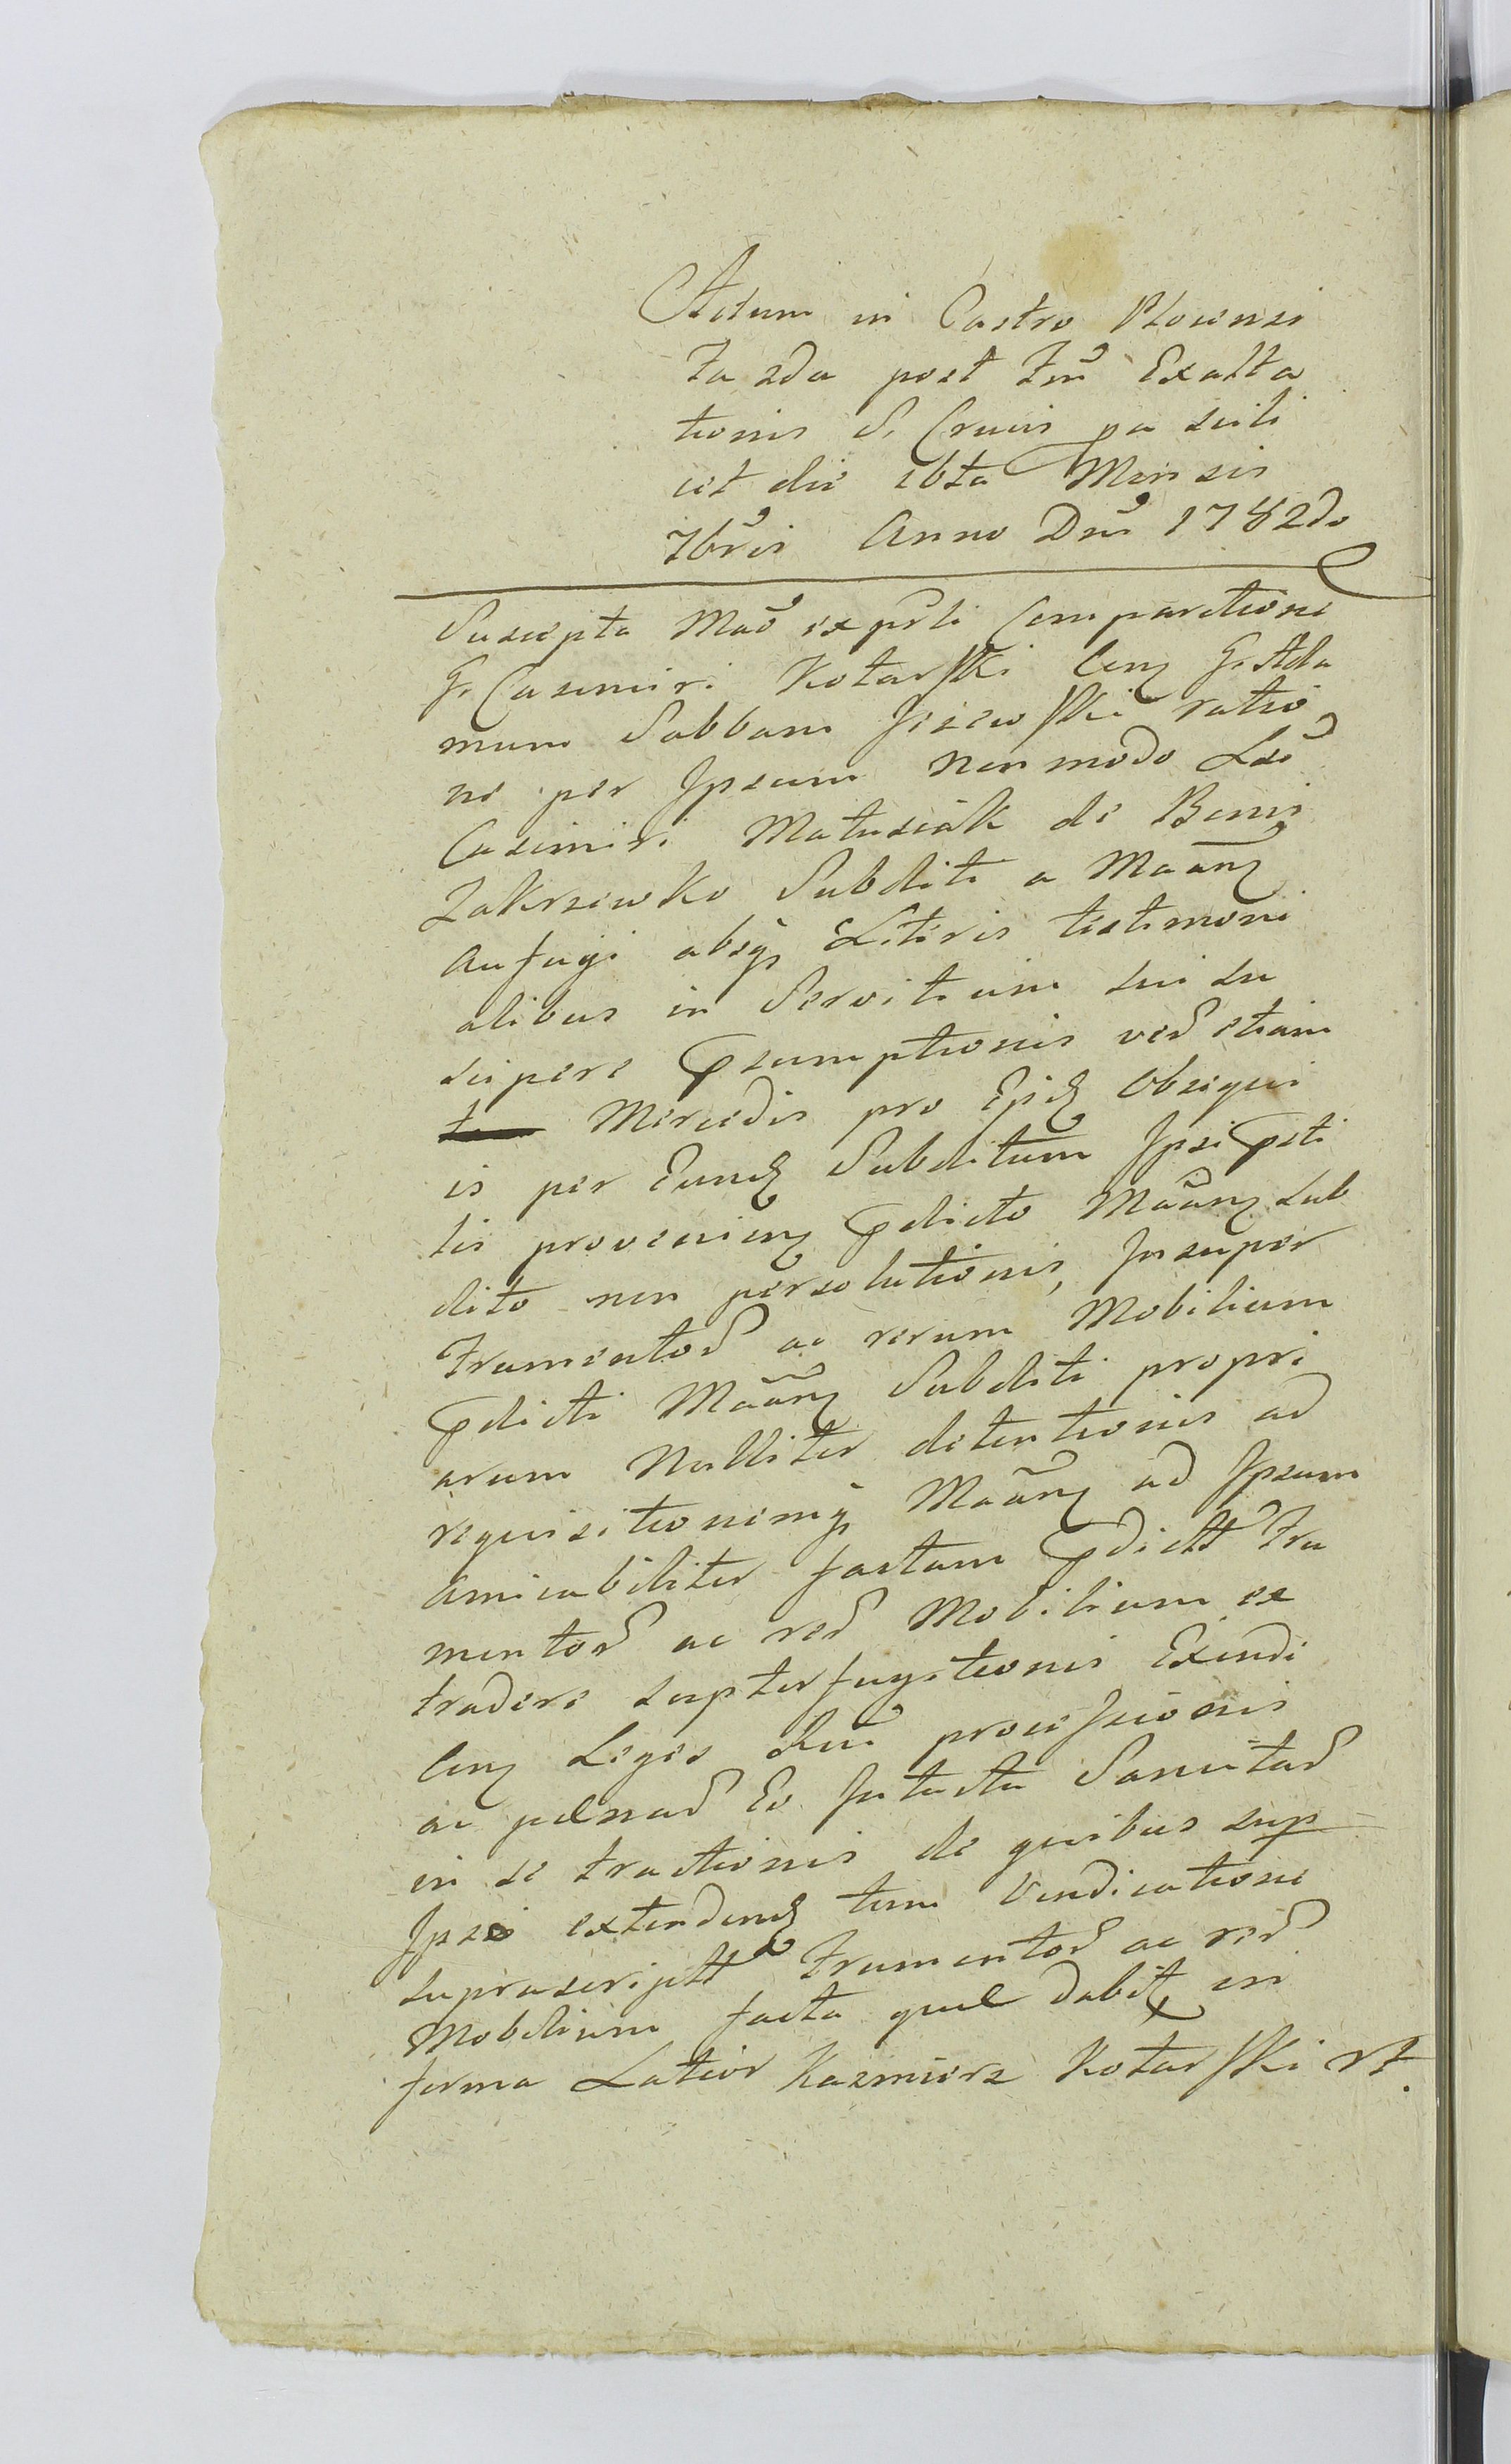 Actum in Castro Plocensi
Fa 2da post Fm̃ Exalta
tionis S. Crucis pa scili
cet die 16ta Mensis
7bris Anno Dni 1782do
Suscepta expsti Comparitione
G. Casimiri Kotarski G. Ada
mum Sabbam Jezewski ratio
ne per Ipsum non modo
Casimiri Matusiak de Bonis
Zakrzewko Subditi a
aufugi absq Literis testimoni
alibus in Servitium sui su
scipere Psumptionis etiam
Mercedis pro Obsequi
is per Eund Subditum Ipsi Psti
tis provenien Pdicto sub
dito non persolutionis, Insuper
Frumentor ac rerum Mobilium
Pdicti Subditi propri
arum Nulliter detentionis ad
requisitionemq ad Ipsum
amicabiliter factam Pdictt Fru
mentor ac rer Mobilium ex
tradere supterfugitionis Exindi
Leges processionis
ac penar Eo Intacta Sancitar
in se tractionis de quibus sup
Ipso extenden tum Vendicatione
suprascriptt Frumentor ac rer
Mobilium facta quae dabit in
forma Latior Kazmierz Kotarski